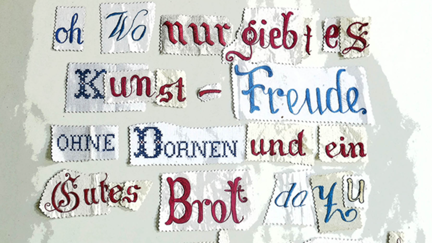 oh Wo nur giebt es
Kunst – Freude.
OHNE DORNEN und ein
Gutes Brot dazu